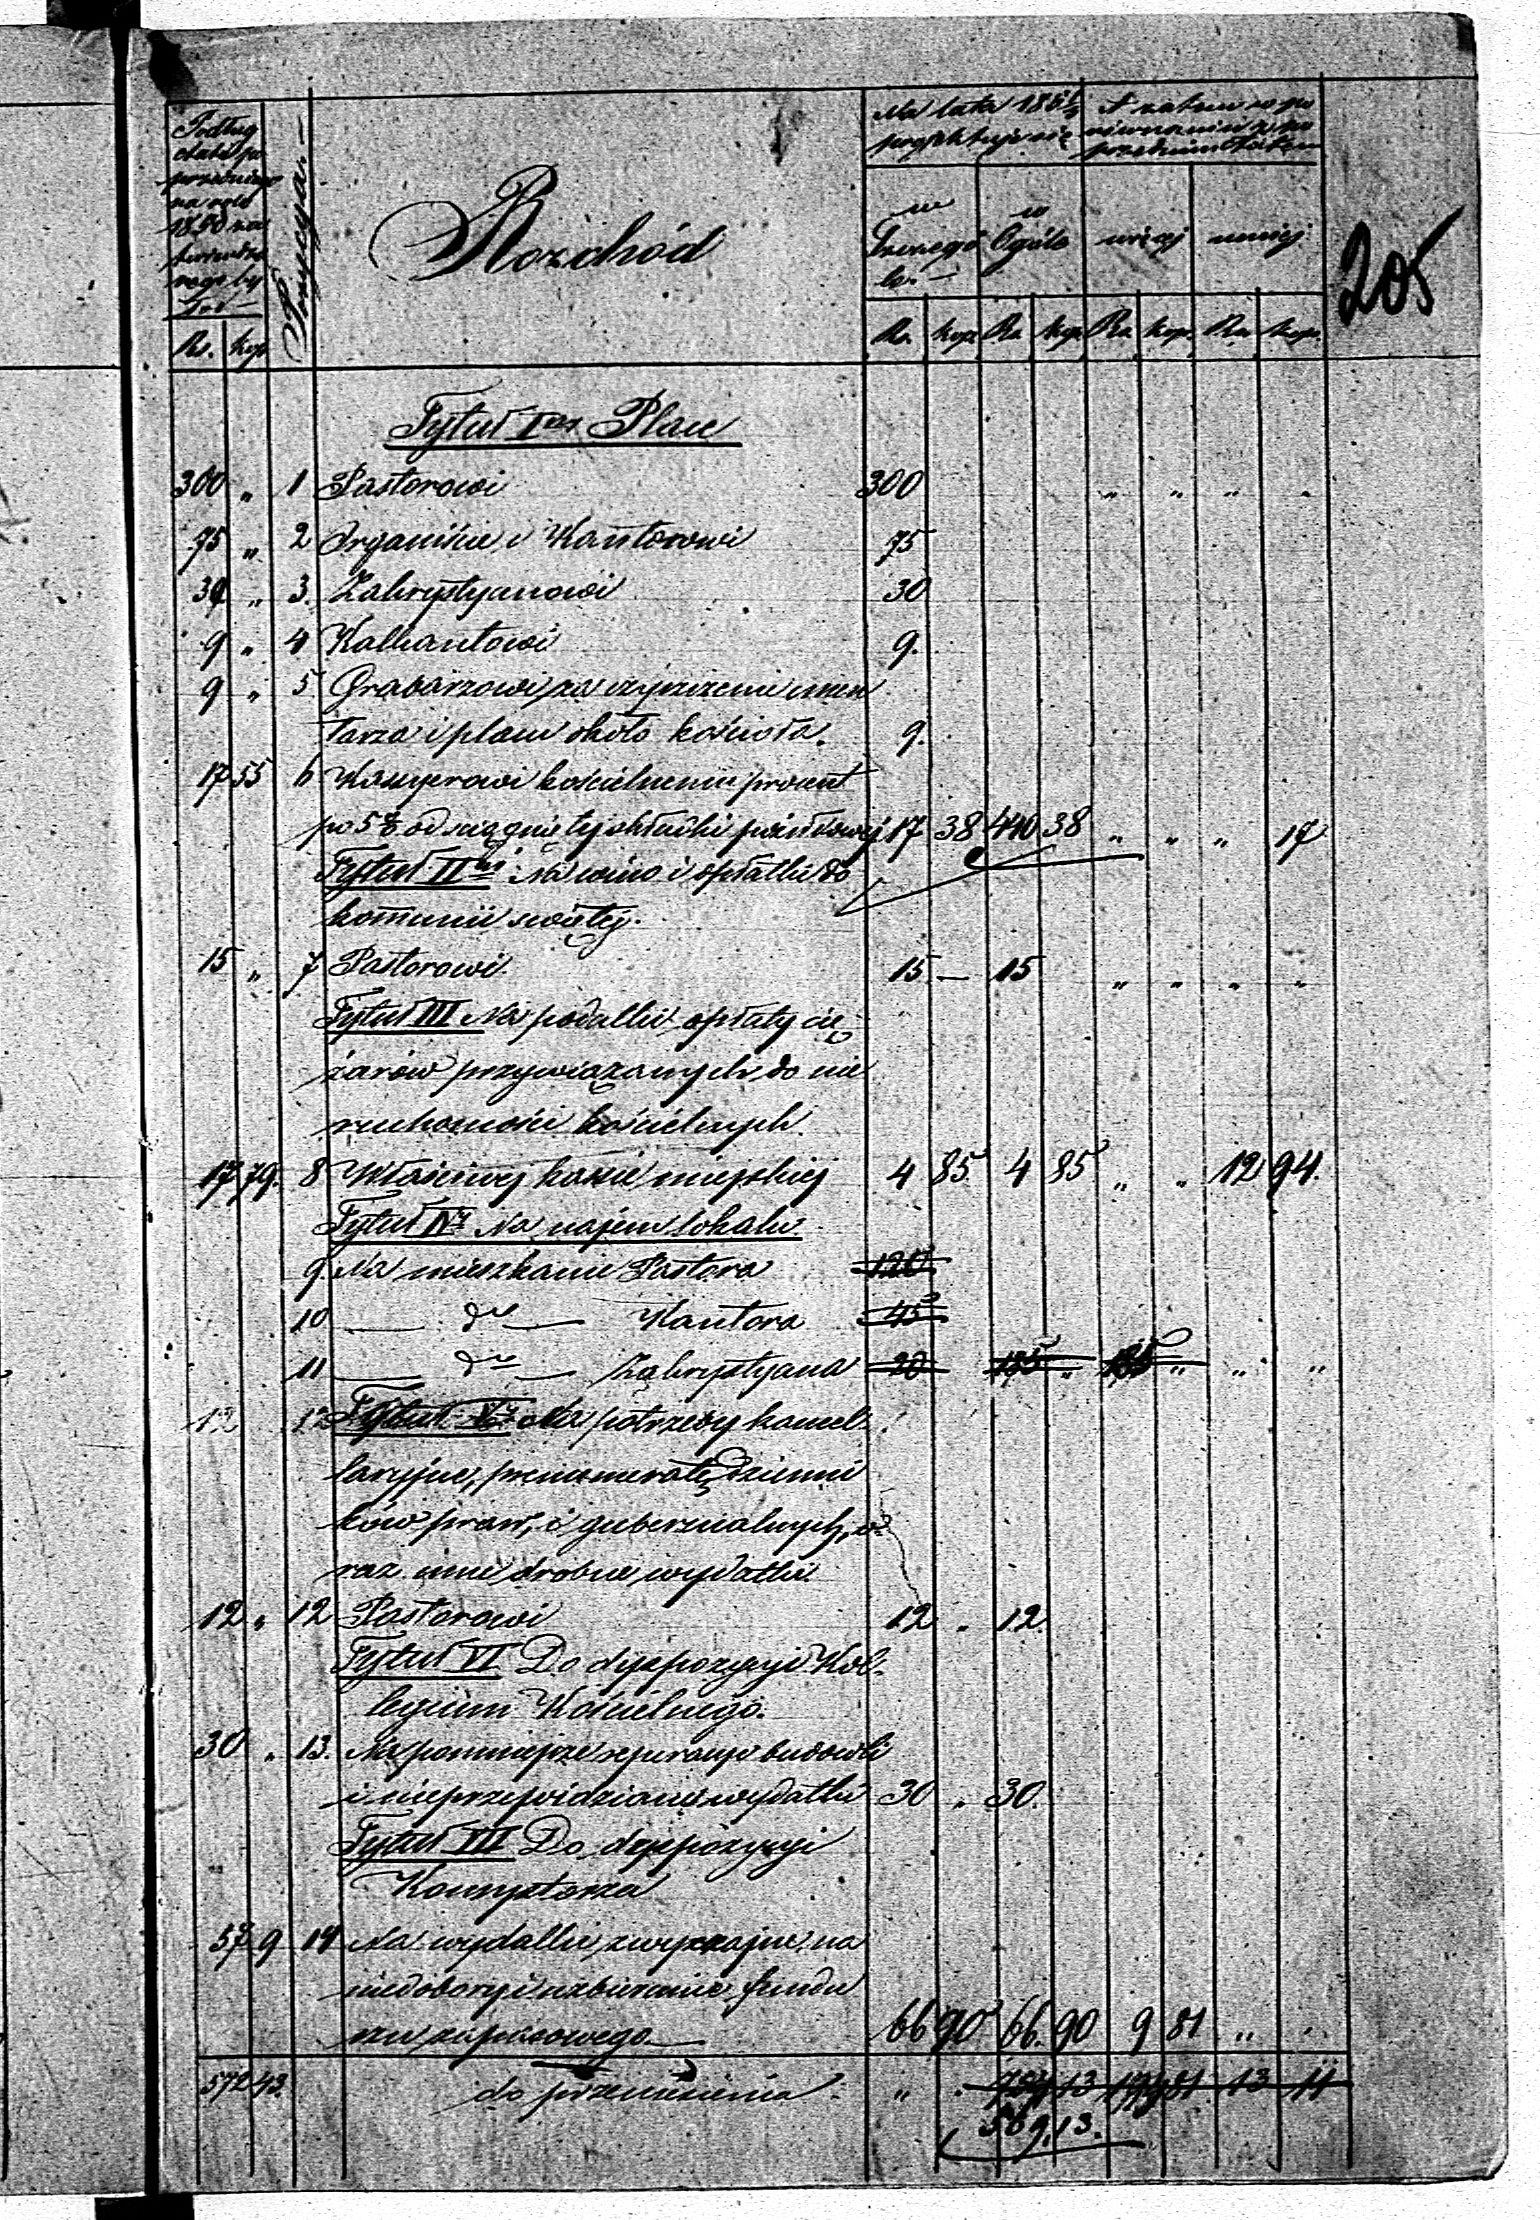 Podług
etatu po
przedniego
na rok
1850 za
twierdzo
nego by
ło
Rs. kop
Pozycya
Rozchód
Na lata 185
projektuje się
w
Szczegó
le.
w
Ogóle
A zatem w po
równaniu z po
przednim etatem
więcej
mniej
Rs. kop. Rs. kop. Rs. kop. Rs. kop.
205
Tytuł I Płace
300 „ 1 Pastorowi 300 „ „ „ „
75 „ 2 Organiście i Kantorowi 75
30 „ 3. Zakrystyanowi 30
9 „ 4 Kalkantowi 9.
9 „ 5 Grabarzowi za czyszczenie smen
tarza i placu około kościoła. 9.
17 55 6 Kassyerowi kościelnemu procent
po 5% od ściągniętej składki 17 38 440 38 „ „ „ 17
Tytuł II Na wino i opłatki do
komunii świętej.
15 „ 7 Pastorowi. 15 — 15 „ „ „ „
Tytuł III Na podatki opłaty cię
żarów przywiązanych do nie
ruchomości kościelnych
17 79. 8 Właściwej kassie miejskiej 4 85 4 85 „ „ 12 94.
Tytuł IV Na najem lokalu
9. Na mieszkanie Pastora 120
10 — dto — Kantora 45
11 — dto — Zakrystyana 20 185 „ 185 „ „ „
12 12 Tytuł V Na potrzeby kancel
laryjne, prenumeratę dzienni
ków praw, i gubernialnych, o
raz inne drobne wydatki.
12 „ 12 Pastorowi 12 „ 12.
Tytuł VI Do dyspozycyi Kol-
legium Kościelnego.
30 „ 13. Na pomniejsze reperacye budowli
i nieprzewidziane wydatki 30 „ 30.
Tytuł VII Do dyspozycyi
Konsystorza
57 9 14 Na wydatki zwyczajne, na
niedobory i uzbieranie fundu
szu zapasowego 66 90 66. 90 9 81 „ „
572 43. do przeniesienia „ „ 13 81 13 11
569.13.